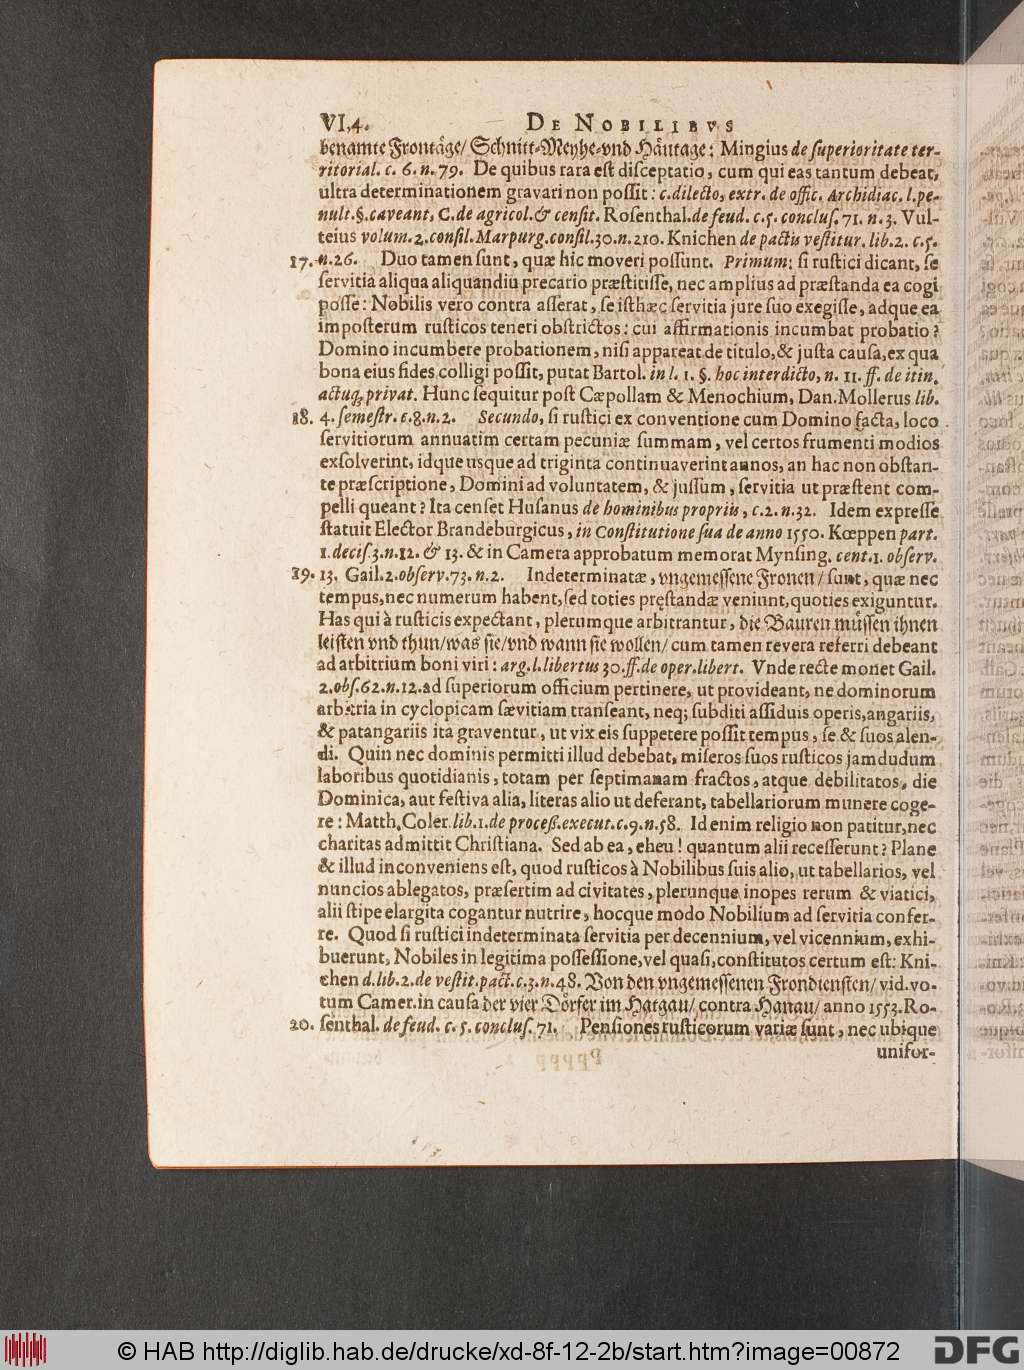 VI,4. DE NOBILIBVS
benamte Frontäge/ Schnitt-Meyhe-vnd Häutage: Mingius de superioritate ter-
ritorial. c. 6. n. 79. De quibus rara est disceptatio, cum qui eas tantum debeat,
ultra determinationem gravari non possit: c. dilecto, extr. de offic. Archidiac. l. pe-
nult. §. caveant, C. de agricol. & censit. Rosenthal. de feud. c. 5. conclus. 71. n. 3. Vul-
teius volum. 2. consil. Marpurg. consil. 30. n. 210. Knichen de pactis vestitur. lib. 2. c. 5.
17. n. 26. Duo tamen sunt, quæ hic moveri possunt. Primum: si rustici dicant, se
servitia aliqua aliquandiu precario præstitisse, nec amplius ad præstanda ea cogi
posse: Nobilis vero contra asserat, se isthæc servitia jure suo exegisse, adque ea
imposterum rusticos teneri obstrictos: cui affirmationis incumbat probatio?
Domino incumbere probationem, nisi appareat de titulo, & justa causa, ex qua
bona eius fides colligi possit, putat Bartol. in l. 1. §. hoc interdicto, n. 11. ff. de itin.
actuq; privat. Hunc sequitur post Cæpollam & Menochium, Dan. Mollerus lib.
18. 4. semestr. c. 8. n. 2. Secundo, si rustici ex conventione cum Domino facta, loco
servitiorum annuatim certam pecuniæ summam, vel certos frumenti modios
exsolverint, idque usque ad triginta continuaverint annos, an hac non obstan-
te præscriptione, Domini ad voluntatem, & jussum, servitia ut præstent com-
pelli queant? Ita censet Husanus de hominibus propriis, c. 2. n. 32. Idem expresse
statuit Elector Brandeburgicus, in Constitutione sua de anno 1550. Kœppen part.
1. decis. 3. n. 12. & 13. & in Camera approbatum memorat Mynsing. cent. 1. observ.
19. 13. Gail. 2. observ. 73. n. 2. Indeterminatæ, vngemessene Fronen/ sunt, quæ nec
tempus, nec numerum habent, sed toties pręstandæ veniunt, quoties exiguntur.
Has qui à rusticis expectant, plerumque arbitrantur, die Bauren müssen ihnen
leisten vnd thun/ was sie/ vnd wann sie wollen/ cum tamen revera referri debeant
ad arbitrium boni viri: arg. l. libertus 30. ff. de oper. libert. Vnde recte monet Gail.
2. obs. 62. n. 12. ad superiorum officium pertinere, ut provideant, ne dominorum
arbitria in cyclopicam sævitiam transeant, neq; subditi assiduis operis, angariis,
& patangariis ita graventur, ut vix eis suppetere possit tempus, se & suos alen-
di. Quin nec dominis permitti illud debebat, miseros suos rusticos jamdudum
laboribus quotidianis, totam per septimanam fractos, atque debilitatos, die
Dominica, aut festiva alia, literas alio ut deferant, tabellariorum munere coge-
re: Matth. Coler. lib. 1. de proceß. execut. c. 9. n. 58. Id enim religio non patitur, nec
charitas admittit Christiana. Sed ab ea, eheu! quantum alii recesserunt? Plane
& illud inconveniens est, quod rusticos à Nobilibus suis alio, ut tabellarios, vel
nuncios ablegatos, præsertim ad civitates, plerunque inopes rerum & viatici,
alii stipe elargita cogantur nutrire, hocque modo Nobilium ad servitia confer-
re. Quod si rustici indeterminata servitia per decennium, vel vicennium, exhi-
buerunt, Nobiles in legitima possessione, vel quasi, constitutos certum est: Kni-
chen d. lib. 2. de vestit. pact. c. 3. n. 48. Von den vngemessenen Frondiensten/ vid. vo-
tum Camer. in causa der vier Dörfer im Hatgau/ contra Hanau/ anno 1553. Ro-
20. senthal. de feud. c. 5. conclus. 71. Pensiones rusticorum variæ sunt, nec ubique
unifor-
© HAB http://diglib.hab.de/drucke/xd-8f-12-2b/start.htm?image=00872 DFG